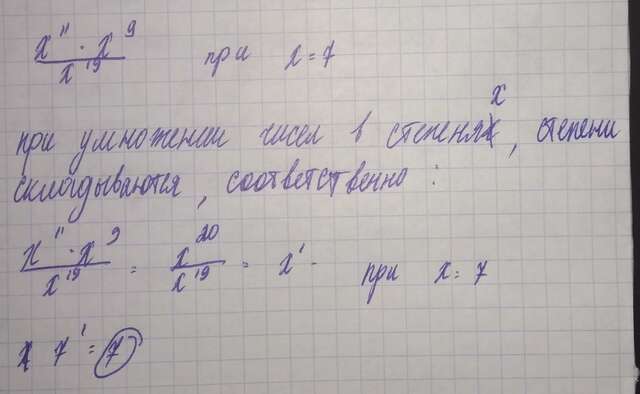 x¹¹ · x⁹ / x¹⁹ при x = 7
при умножении чисел в степенях, степени
складываются, соответственно:
x¹¹ · x⁹ / x¹⁹ = x²⁰ / x¹⁹ = x¹ при x = 7
7¹ = 7